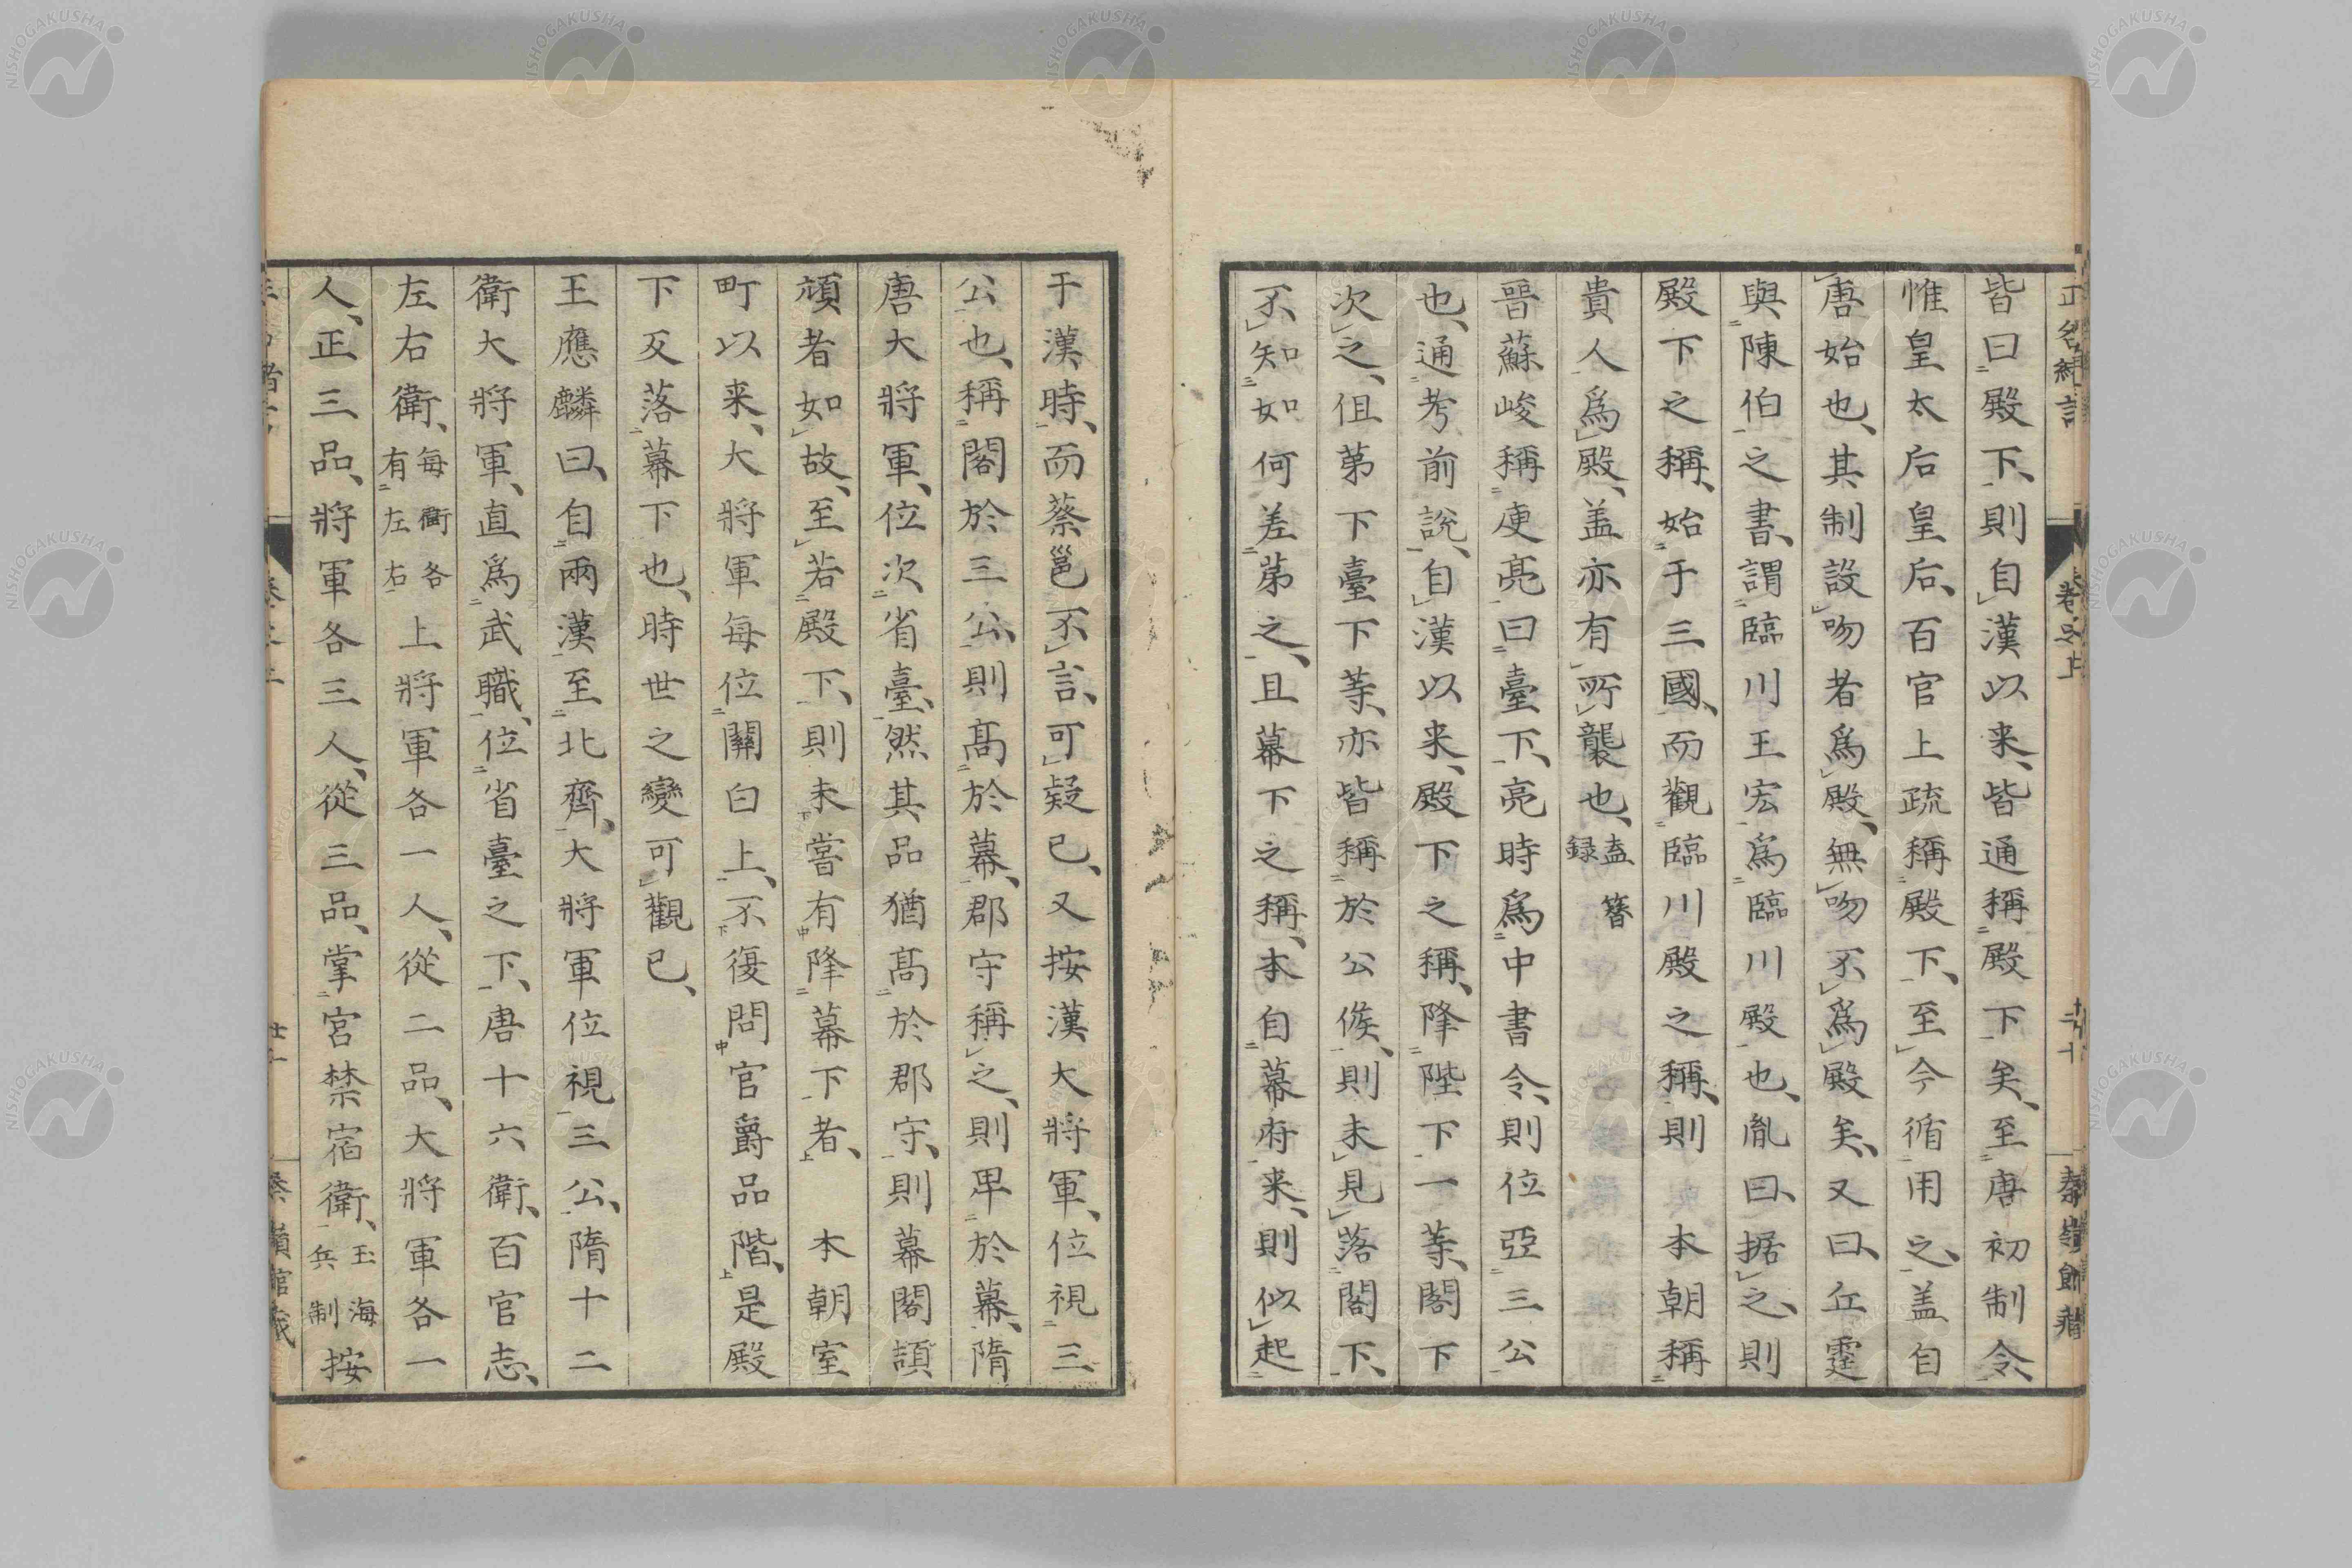 皆曰殿下、則自漢以来、皆通稱殿下矣、至唐初制令、
惟皇太后皇后、百官上疏稱殿下、至今循用之、盖自
唐始也、其制設吻者爲殿、無吻不爲殿矣、又曰、丘霆
與陳伯之書、謂臨川王宏爲臨川殿也、胤曰、据之、則
殿下之稱、始于三國、而觀臨川殿之稱、則 本朝稱
貴人爲殿、盖亦有所襲也、盍簪録
晉蘇峻稱庾亮曰臺下、亮時爲中書令、則位亞三公
也、通考前說、自漢以来、殿下之稱、降陛下一等、閣下
次之、但第下臺下等、亦皆稱於公侯、則未見落閣下、
不知如何差第之、且幕下之稱、本自幕府来、則似起
于漢時、而蔡邕不言、可疑已、又按漢大將軍、位視三
公也、稱閣於三公、則高於幕、郡守稱之、則卑於幕、隋
唐大將軍、位次省臺、然其品猶高於郡守、則幕閣頡
頏者如故、至若殿下、則未嘗有降幕下者、 本朝室
町以来、大將軍每位關白上、不復問官爵品階、是殿
下反落幕下也、時世之變可觀已、
王應麟曰、自兩漢至北齊、大將軍位視三公、隋十二
衛大將軍、直爲武職、位省臺之下、唐十六衛、百官志、
左右衛、每衛各有左右上將軍各一人、從二品、大將軍各一
人、正三品、將軍各三人、從三品、掌宮禁宿衛、玉海兵制按